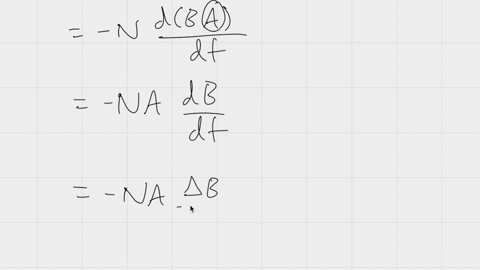 = -N d(BA)/dt
= -NA dB/dt
= -NA ΔB